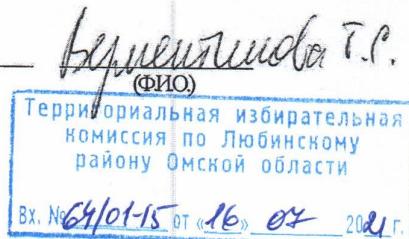 Т.С.
(ФИО)
Территориальная избирательная
комиссия по Любинскому
району Омской области
Вх. № 64/01-15 от «16» 07 2021 г.